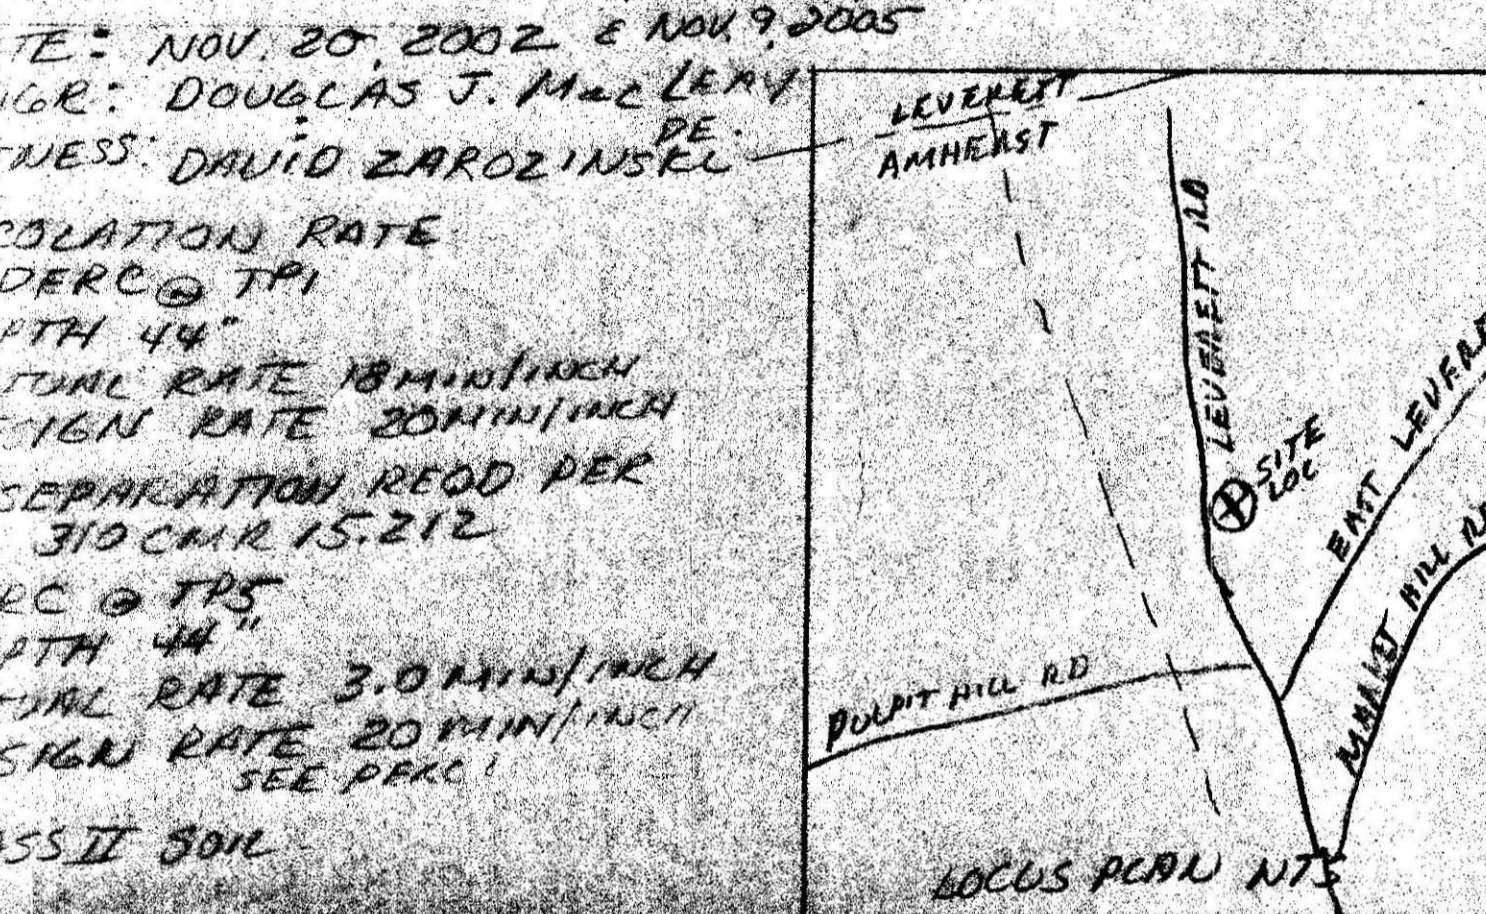 TE: NOV. 20, 2002 & NOV. 9, 2005
NGR: DOUGLAS J. MacLEAY
PE.
TNESS: DAVID ZAROZINSKI
COLATION RATE
PERC @ TP1
PTH 44"
TUAL RATE 18 MIN/INCH
SIGN RATE 20 MIN/INCH
SEPARATION REQD PER
310 CMR 15.212
RC @ TP5
PTH 44"
TUAL RATE 3.0 MIN/INCH
SIGN RATE 20 MIN/INCH
SEE PERC 1
ASS II SOIL
LEVERETT
AMHERST
LEVERETT RD
SITE
LOC
EAST LEVERE
MARKET HILL RD
PULPIT HILL RD
LOCUS PLAN NTS